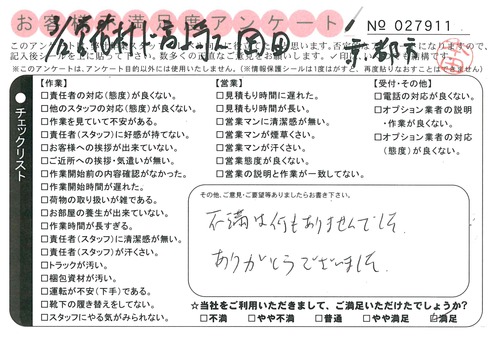 お客様満足度アンケート
No 027911
京都市
記入後シールを上に貼って下さい。数多くの正直なご意見をお願いします。
※このアンケートは、アンケート目的以外には使用いたしません。(※情報保護シールは1度がすと、再度貼りなおすことはできません)
チェックリスト
【作業】
□責任者の対応(態度)が良くない。
□他のスタッフの対応(態度)が良くない。
□作業を見ていて不安がある。
□責任者(スタッフ)に好感が持てない。
□お客様への挨拶が出来ていない。
□ご近所への挨拶・気遣いが無い。
□作業開始前の内容確認がなかった。
□作業開始時間が遅れた。
□荷物の取り扱いが雑である。
□お部屋の養生が出来ていない。
□作業時間が長すぎる。
□責任者(スタッフ)に清潔感が無い。
□責任者(スタッフ)が汗くさい。
□トラックが汚い。
□梱包資材が汚い。
□運転が不安(下手)である。
□靴下の履き替えをしてない。
□スタッフにやる気がみられない。
【営業】
□見積もり時間に遅れた。
□見積もり時間が長い。
□営業マンに清潔感が無い。
□営業マンが煙草くさい。
□営業マンが汗くさい。
□営業態度が良くない。
□営業の説明と作業が一致してない。
【受付・その他】
□電話の対応が良くない。
□オプション業者の説明
・作業が良くない。
□オプション業者の対応
(態度)が良くない。
その他、ご意見・ご要望等ありましたらお書き下さい。
不満は何もありませんでした。
ありがとうございました。
☆当社をご利用いただきまして、ご満足いただけたでしょうか?
□不満 □やや不満 □普通 □やや満足 ☑満足